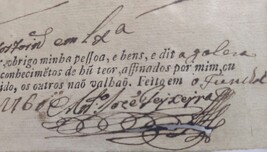 em Lxa
obrigo minha peſſoa, e bens, e dit a galera
conhecimẽtos de hũ teor, aſſinados por mim, ou
ido, os outros naõ valhaõ. Feito em o Funchal
176
Joze Teyxeyra